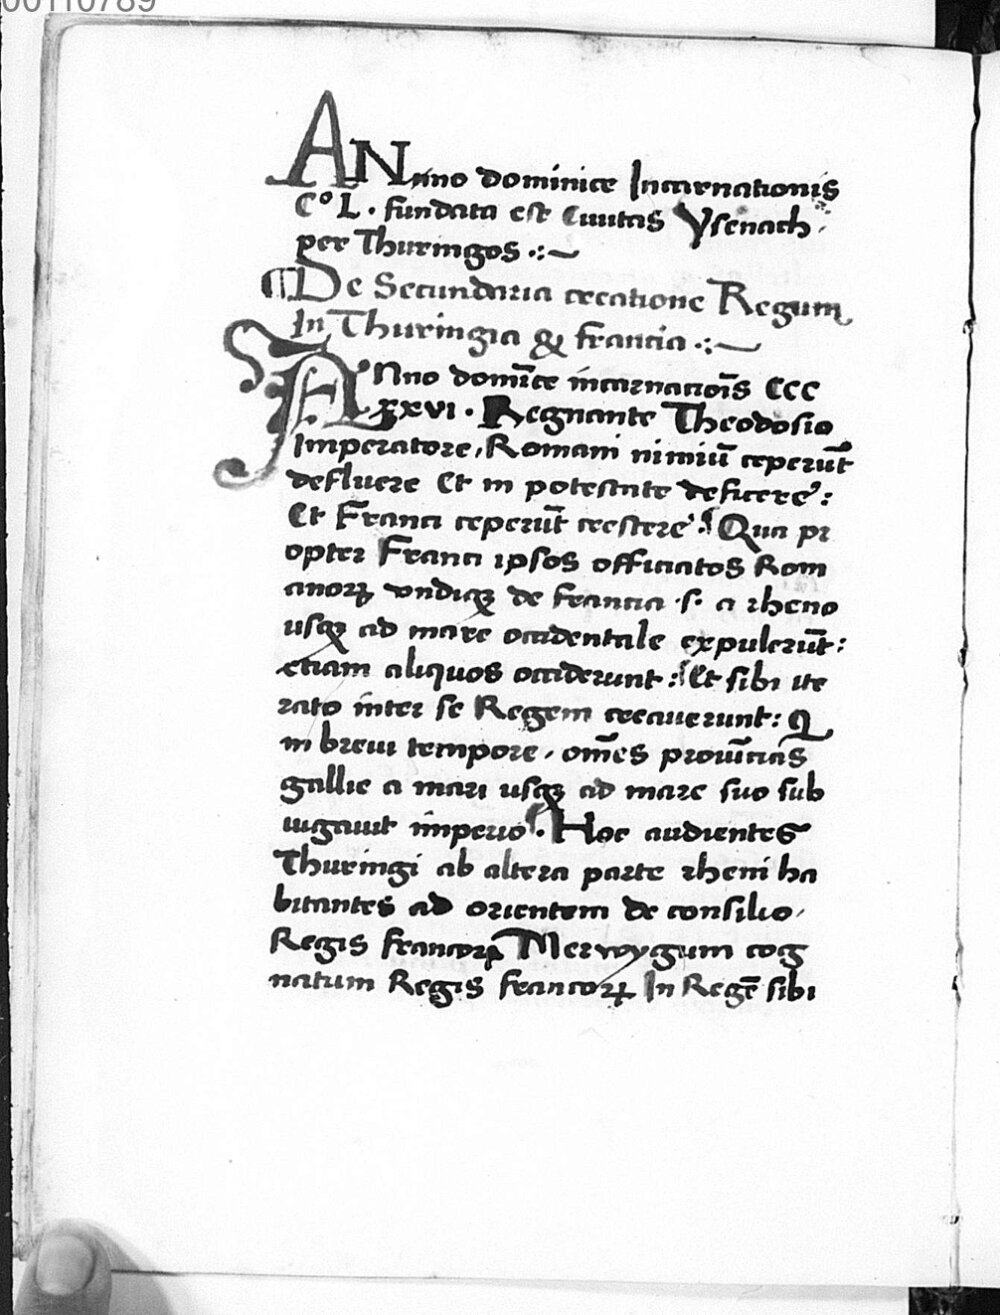 00110789
ANnno dominice Incarnationis
Cº L. fundata est Ciuitas Ysenach.
per Thuringos .:~
¶ De Secundaria creatione Regum
In Thuringia & francia .:~
ANno domīce incarnatiōīs CCC
xxvi. Regnante Theodosio
Imperatore, Romani nimiū ceperūt
defluere Et in potestate deficere:
Et Franci ceperūt crescere. Qua pr
opter Franci ipsos officiatos Rom
anoꝝ vndiqꝫ de francia .s. a rheno
usqꝫ ad mare occidentale expulerūt:
etiam aliquos occiderunt: Et sibi ite
rato inter se Regem creauerunt: Q
in breui tempore, om̄es prouīcias
gallie a mari usqꝫ ad mare suo sub
iugauit imperio. Hoc audientes
Thuringi ab altera parte rheni ha
bitantes ad orientem de consilio,
Regis francoꝝ Merwygum cog
natum Regis francoꝝ In Regē sibi